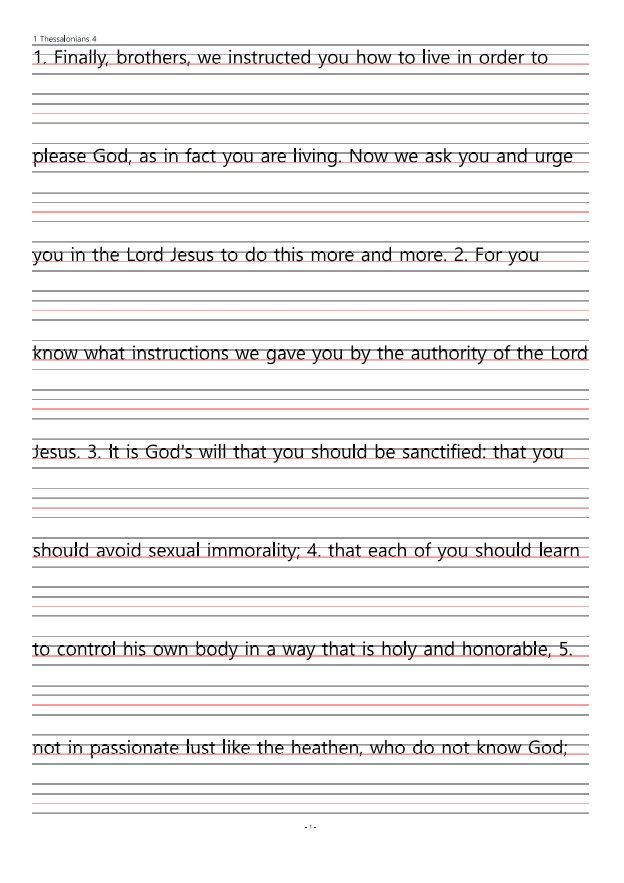 1 Thessalonians 4
1. Finally, brothers, we instructed you how to live in order to
please God, as in fact you are living. Now we ask you and urge
you in the Lord Jesus to do this more and more. 2. For you
know what instructions we gave you by the authority of the Lord
Jesus. 3. It is God's will that you should be sanctified: that you
should avoid sexual immorality; 4. that each of you should learn
to control his own body in a way that is holy and honorable, 5.
not in passionate lust like the heathen, who do not know God;
- 1 -